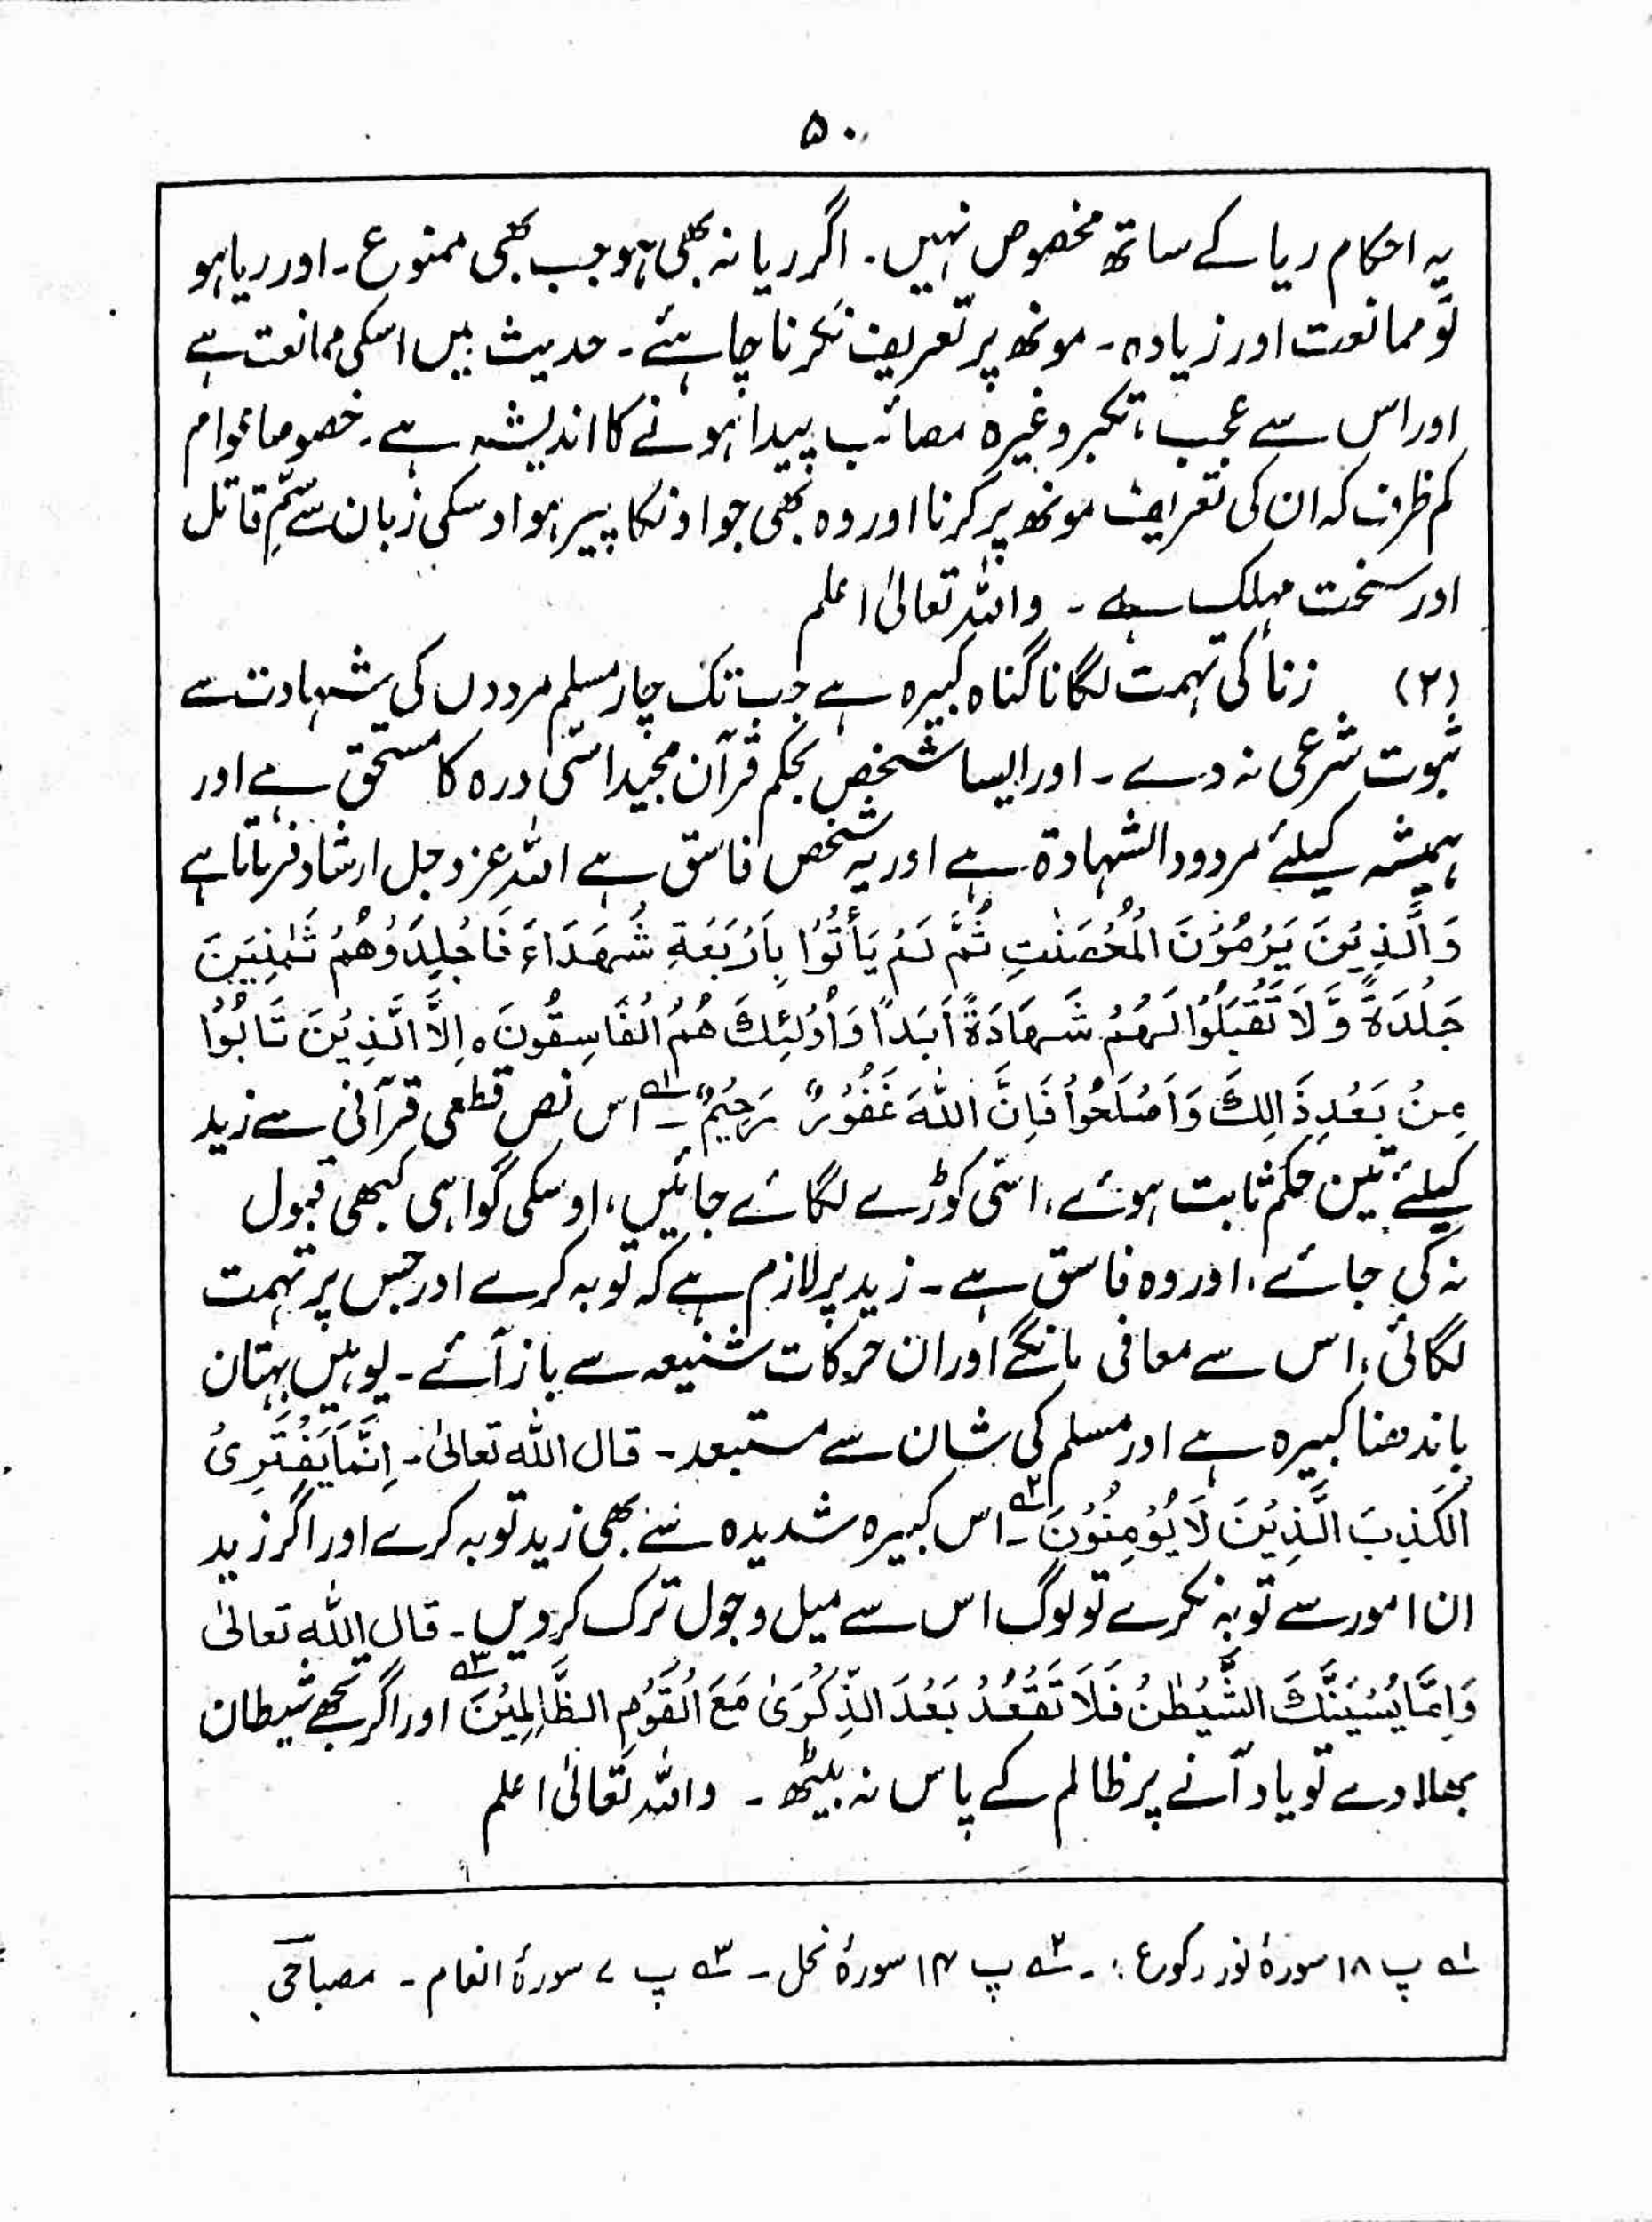 ۵۰
یہ احکام ریا کے ساتھ مخصوص نہیں۔ اگر ریا نہ بھی ہو جب بھی ممنوع۔ اور ریا ہو
تو ممانعت اور زیادہ۔ مونھ پر تعریف نکرنا چاہئے۔ حدیث میں اسکی ممانعت ہے
اور اس سے عجب، تکبر وغیرہ مصائب پیدا ہونے کا اندیشہ ہے۔ خصوصا عوام
کم ظرف کہ ان کی تعریف مونھ پر کرنا اور وہ بھی جو اونکا پیر ہو اوسکی زبان سے سَمِّ قاتل
اور سخت مہلک ہے۔ واللہ تعالیٰ اعلم
(۲) زنا کی تہمت لگانا گناہ کبیرہ ہے جب تک چار مسلم مردوں کی شہادت سے
ثبوت شرعی نہ دے۔ اور ایسا شخص بحکم قرآن مجید اسّی درہ کا مستحق ہے اور
ہمیشہ کیلئے مردود الشہادۃ ہے اور یہ شخص فاسق ہے اللہ عزوجل ارشاد فرماتا ہے
وَالَّذِیْنَ یَرْمُوْنَ الْمُحْصَنٰتِ ثُمَّ لَمْ یَأْتُوْا بِاَرْبَعَةِ شُهَدَاءَ فَاجْلِدُوْهُمْ ثَمٰنِیْنَ
جَلْدَةً وَّلَا تَقْبَلُوْا لَهُمْ شَهَادَةً اَبَداً وَاُوْلٰئِكَ هُمُ الْفَاسِقُونَ ہ اِلَّا الَّذِیْنَ تَابُوْا
مِنْ بَعْدِ ذَالِكَ وَاَصْلَحُوْا فَاِنَّ اللّٰهَ غَفُوْرٌ رَحِیْمٌ۱؎۔ اس نص قطعی قرآنی سے زید
کیلئے تین حکم ثابت ہوئے، اسّی کوڑے لگائے جائیں، اوسکی گواہی کبھی قبول
نہ کی جائے، اور وہ فاسق ہے۔ زید پر لازم ہے کہ توبہ کرے اور جس پر تہمت
لگائی، اس سے معافی مانگے اور ان حرکات شنیعہ سے باز آئے۔ یوہیں بہتان
باندھنا کبیرہ ہے اور مسلم کی شان سے مستبعد۔ قال اللہ تعالیٰ۔ اِنَّمَا یَفْتَرِیْ
الْکَذِبَ الَّذِیْنَ لَا یُوْمِنُوْنَ۲؎۔ اس کبیرہ شدیدہ سے بھی زید توبہ کرے اور اگر زید
ان امور سے توبہ نکرے تو لوگ اس سے میل وجول ترک کردیں۔ قال اللہ تعالیٰ
وَاِمَّا یُنْسِیَنَّكَ الشَّیْطٰنُ فَلَا تَقْعُدْ بَعْدَ الذِّکْرٰی مَعَ الْقَوْمِ الظَّالِمِیْنَ۳؎ اور اگر تجھے شیطان
بھلا دے تو یاد آنے پر ظالم کے پاس نہ بیٹھ۔ واللہ تعالیٰ اعلم
۱؎ پ ۱۸ سورۂ نور رکوع ۔ ۲؎ پ ۱۴ سورۂ نحل۔ ۳؎ پ ۷ سورۂ انعام۔ مصباحی